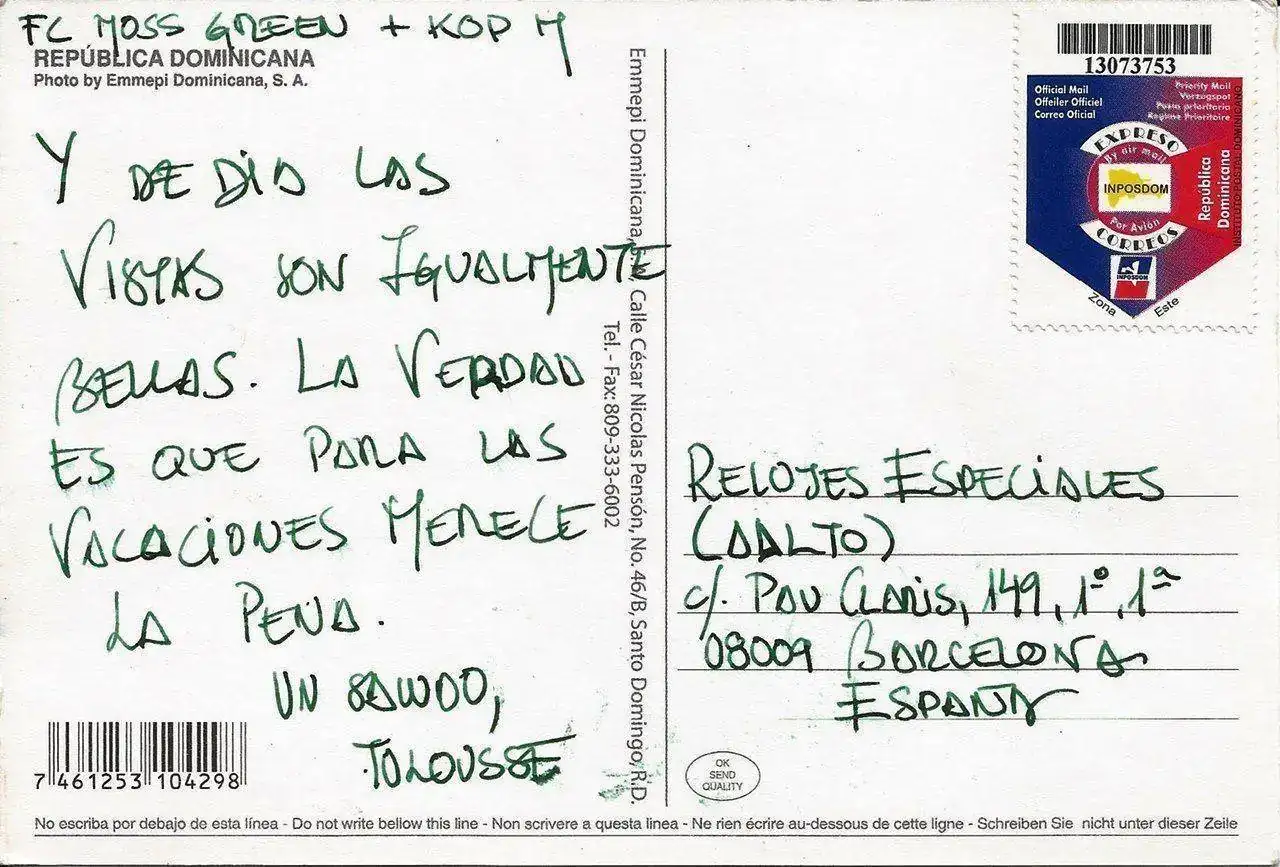 FC MOSS GREEN + KOP M
REPÚBLICA DOMINICANA
Photo by Emmepi Dominicana, S. A.
Y DE DIA LAS
VISTAS SON IGUALMENTE
BELLAS. LA VERDAD
ES QUE PARA LAS
VACACIONES MERECE
LA PENA.
UN SALUDO,
TOLOUSSE
7 461253 104298
Emmepi Dominicana, Calle César Nicolas Pensón, No. 46/B, Santo Domingo, R.D.
Tel. - Fax: 809-333-6002
13073753
Official Mail
Offeiler Officiel
Correo Oficial
Priority Mail
Vorzugspot
Posta prioritaria
Regime Prioritaire
EXPRESO
By air mail
INPOSDOM
Por Avión
CORREOS
República
Dominicana
INSTITUTO POSTAL DOMINICANO
INPOSDOM
Zona Este
RELOJES ESPECIALES
(AALTO)
c/. PAU CLARIS, 149, 1º, 1ª
08009 BARCELONA
ESPAÑA
OK
SEND
QUALITY
No escriba por debajo de esta línea - Do not write bellow this line - Non scrivere a questa linea - Ne rien écrire au-dessous de cette ligne - Schreiben Sie nicht unter dieser Zeile